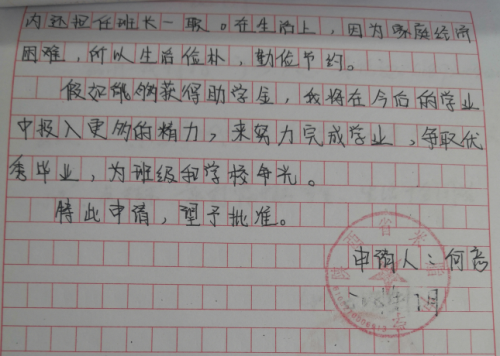 内还担任班长一职。在生活上，因为家庭经济
困难，所以生活俭朴，勤俭节约。
假如能够获得助学金，我将在今后的学业
中投入更多的精力，来努力完成学业，争取优
秀毕业，为班级和学校争光。
特此申请，望予批准。
陕西省米
申请人：何
月